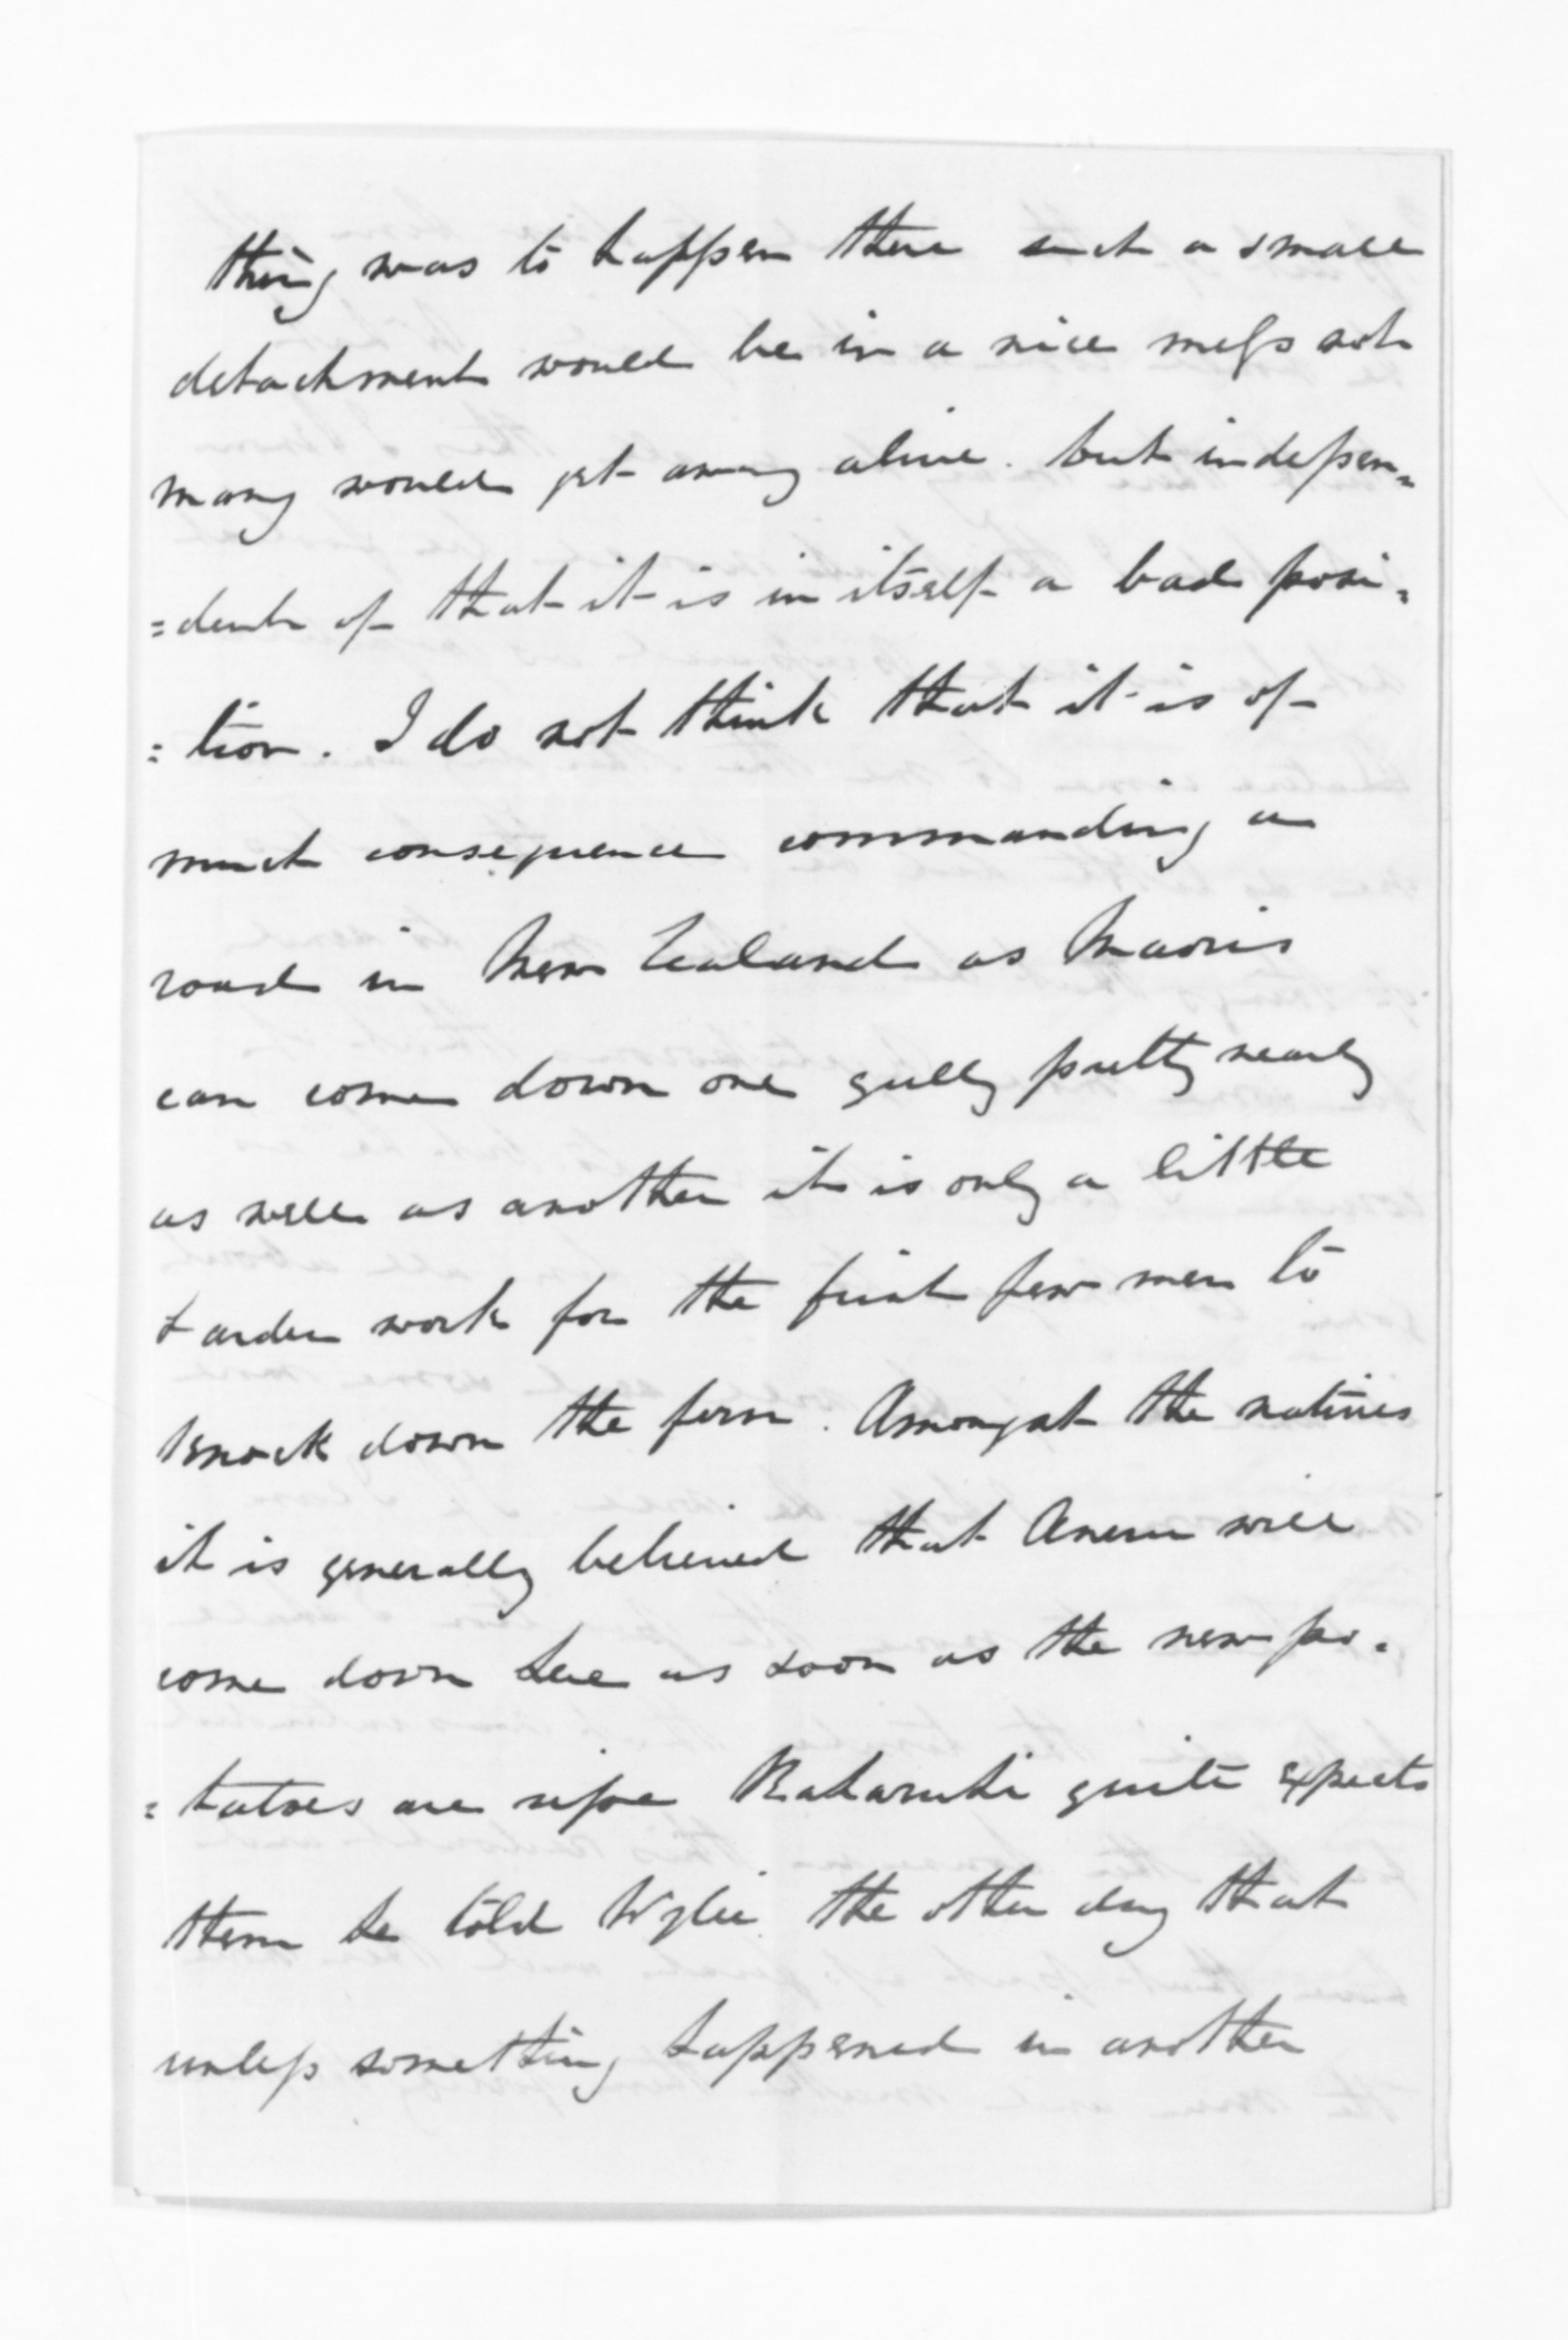 thing was to happen there such a small
detachment would be in a nice mess not
many would get away alive. but indepen=
=dent of that it is in itself a bad posi=
=tion. I do not think that it is of
much consequence commanding a
road in New Zealand as Maoris
can come down one gully pretty nearly
as well as another it is only a little
harder work for the first few men to
knock down the fern. Amongst the natives
it is generally believed that will
come down here as soon as the new po=
=tatoes are ripe quite expects
them he told Wylie the other day that
unless something happened in another